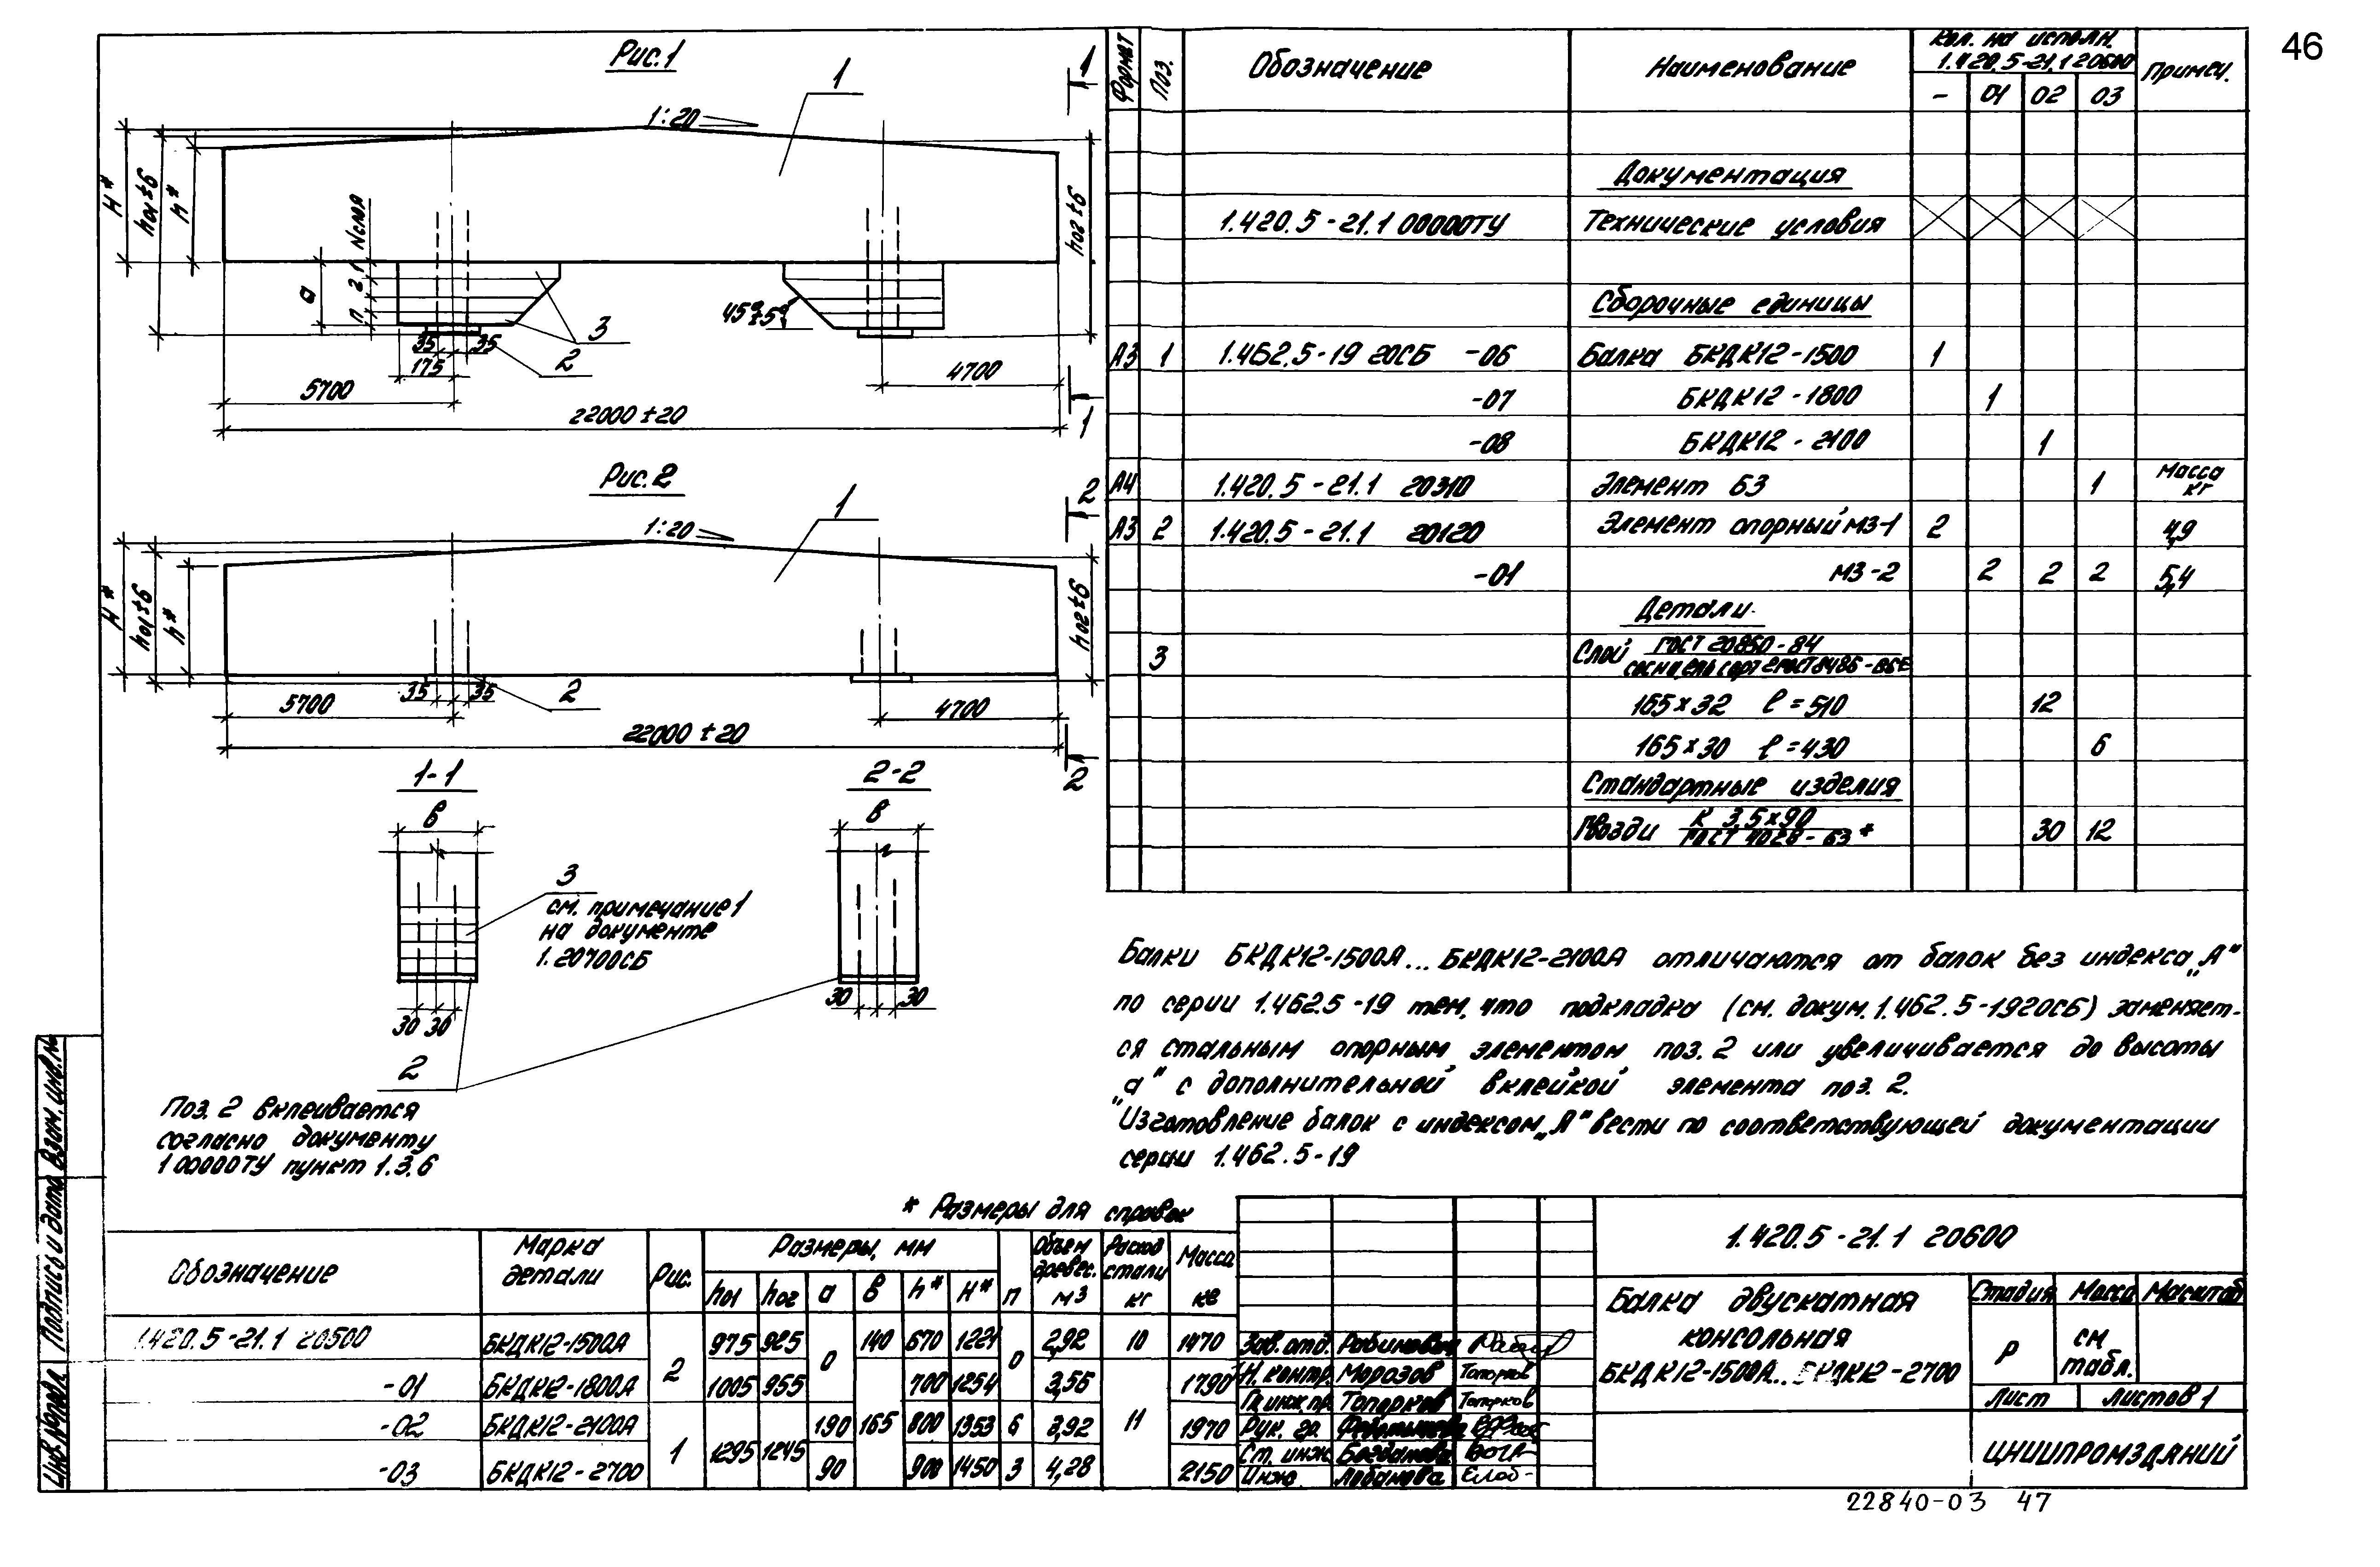 46
Рис.1
1
1
1:20
H*
h01±6
h*
N слоя
1
2
п
а
h02±6
45°±5°
3
35 35
2
175
5700
4700
22000±20
1
Рис.2
1
2
1:20
H*
h01±6
h*
h02±6
35 35
2
5700
4700
22000±20
2
1-1
2-2
в
в
3
см. примечание 1
на документе
1.20700СБ
30 30
30 30
2
Поз. 2 вклеивается
согласно документу
1 00000ТУ пункт 1.3.6
Формат Поз. Обозначение Наименование Кол. на исполн. 1.420.5-21.1 20600 Примеч.
- 01 02 03
Документация
1.420.5-21.1 00000ТУ Технические условия
Сборочные единицы
А3 1 1.462.5-19 20СБ -06 Балка БКДК12-1500 1
-07 БКДК12-1800 1
-08 БКДК12-2100 1
А4 1.420.5-21.1 20310 Элемент Б3 1 Масса кг
А3 2 1.420.5-21.1 20120 Элемент опорный М3-1 2 4,9
-01 М3-2 2 2 2 5,4
Детали
3 Слой ГОСТ 20850-84
165×32 ℓ=510 12
165×30 ℓ=430 6
Стандартные изделия
Гвозди К 3,5×90 ГОСТ 4028-63* 30 12
Балки БКДК12-1500А...БКДК12-2100А отличаются от балок без индекса „А"
по серии 1.462.5-19 тем, что подкладка (см. докум. 1.462.5-1920СБ) заменяет-
ся стальным опорным элементом поз. 2 или увеличивается до высоты
„а" с дополнительной вклейкой элемента поз. 2.
Изготовление балок с индексом „А" вести по соответствующей документации
серии 1.462.5-19
* Размеры для справок
Обозначение Марка детали Рис. Размеры, мм п Объем древес. м3 Расход стали кг Масса кг
h01 h02 а в h* H*
1.420.5-21.1 20500 БКДК12-1500А 2 975 925 0 140 670 1221 0 2,92 10 1470
-01 БКДК12-1800А 1005 955 165 700 1254 3,56 11 1790
-02 БКДК12-2100А 1 1295 1245 190 800 1353 6 3,92 1970
-03 БКДК12-2700 90 900 1450 3 4,28 2150
Зав. отд. Рабинович
Н. контр. Морозов Топорков
Гл. инж. пр. Топорков Топорков
Рук. гр.
Ст. инж. Богданова
Инж. Лобанова
1.420.5-21.1 20600
Балка двускатная
консольная
БКДК12-1500А...БКДК12-2700
Стадия Масса Масштаб
Р см. табл.
Лист Листов 1
ЦНИИПРОМЗДАНИЙ
Инв. № подл. Подпись и дата Взам. инв. №
22840-03 47